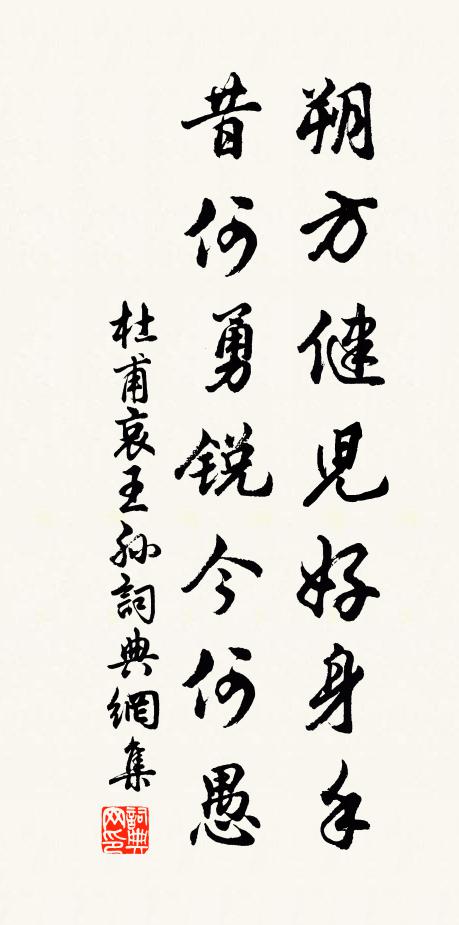 朔方健児好身手
昔何勇銳今何愚
杜甫哀王孫詞典網集
詞典网印